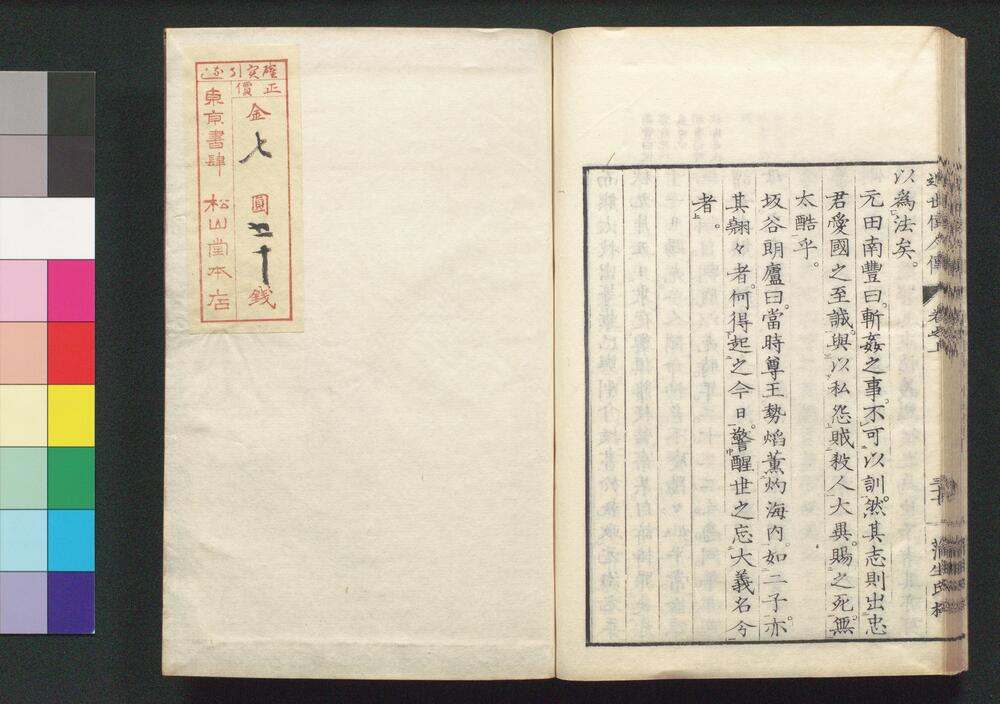 以爲法矣。
元田南豐曰。斬姦之事。不可以訓。然其志則出忠
君愛國之至誠。與以私怨賊殺人大異。賜之死。無
太酷乎。
坂谷朗廬曰。當時尊王勢焰薰灼海內。如二子亦
其翹々者。何得起之今日。警醒世之忘大義名分
者。
近世偉人傳
卷之上
蒲生氏
正價
金七圓五十錢
東京書肆 松山堂本店